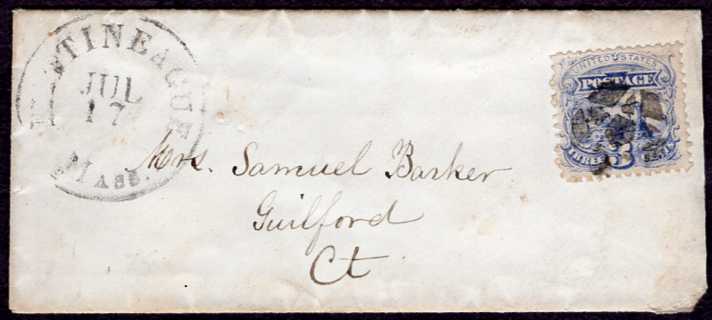 MITTINEAGUE
JUL
17
MASS.
UNITED STATES
POSTAGE
THREE 3 CENTS
Mrs. Samuel Barker
Guilford
Ct